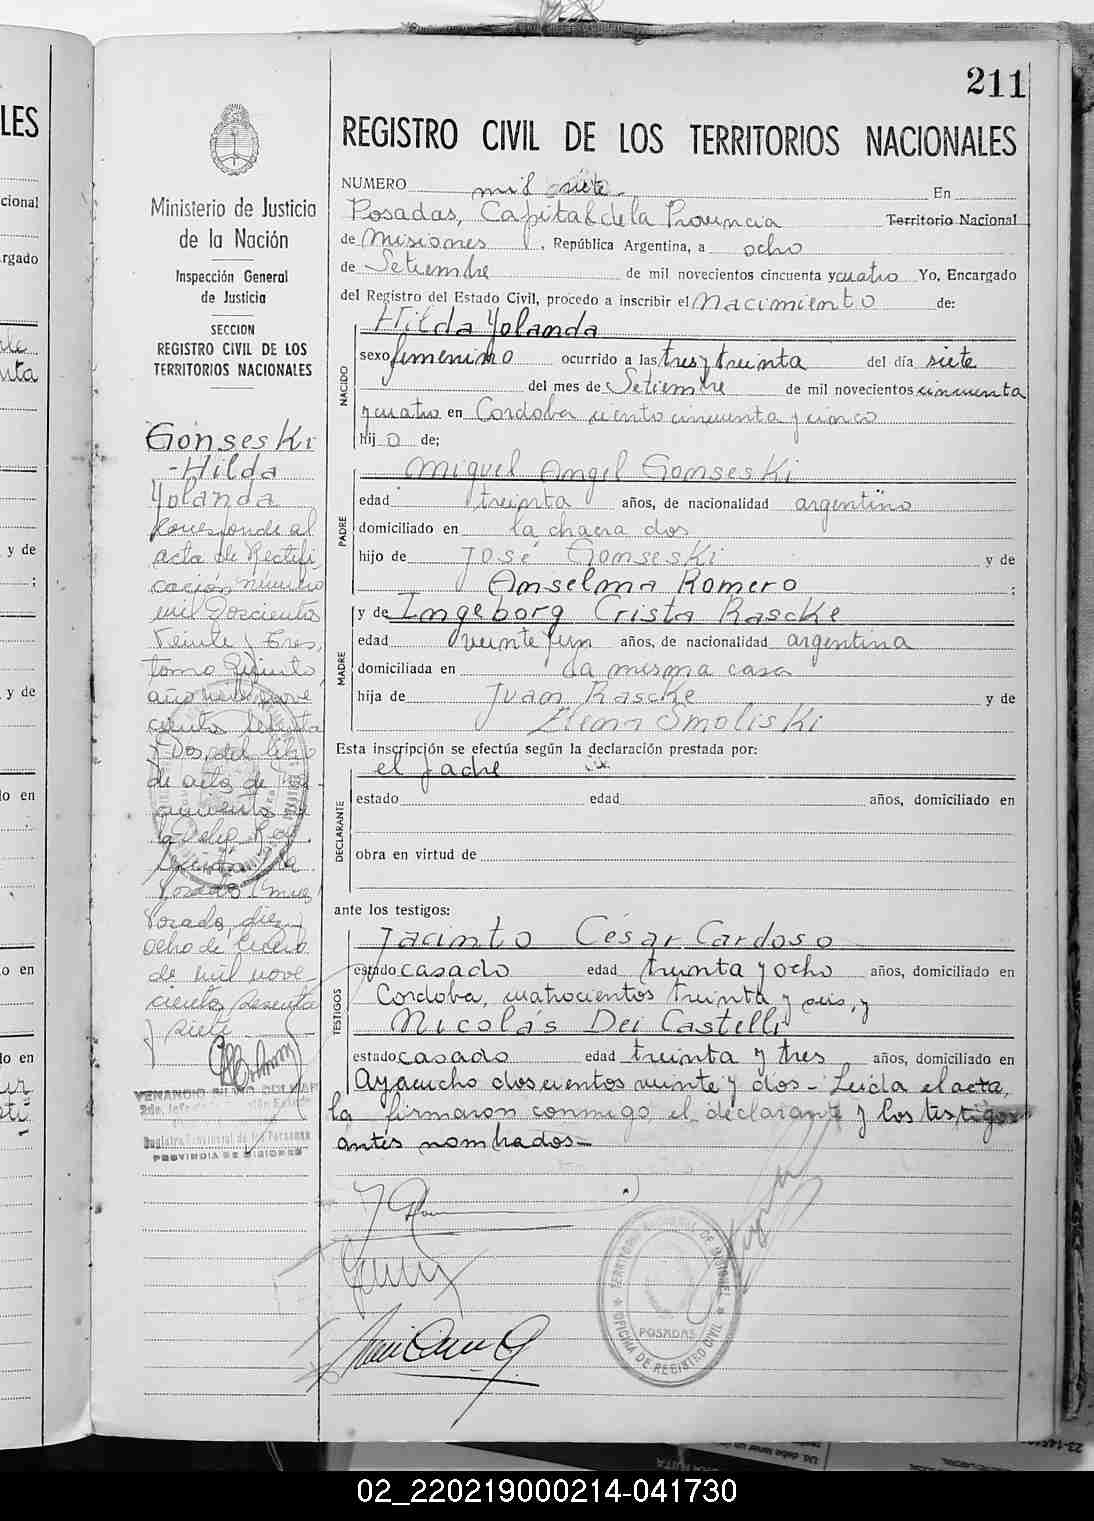 211
LES
cional
rgado
y de
;
y de
do en
o en
do en
Ministerio de Justicia
de la Nación
Inspección General
de Justicia
SECCION
REGISTRO CIVIL DE LOS
TERRITORIOS NACIONALES
Gonseski
-Hilda
Yolanda
Corresponde al
acta de Rectifi
cación número
mil Doscientos
Veinte y Tres,
tomo Quinto,
año mil nove
cientos sesenta
y Dos, del libro
de actas de
la Deleg.
Posadas
Posadas, diez y
ocho de Enero
de mil nove
cientos sesenta
y siete
Registro Provincial de las Personas
PROVINCIA DE MISIONES
REGISTRO CIVIL DE LOS TERRITORIOS NACIONALES
NUMERO mil siete- En
Posadas, Capital de la Provincia Territorio Nacional
de Misiones, República Argentina, a ocho
de Setiembre de mil novecientos cincuenta y cuatro Yo, Encargado
del Registro del Estado Civil, procedo a inscribir el Nacimiento de:
NACIDO
Hilda Yolanda
sexo femenino ocurrido a las tres y treinta del día siete
del mes de Setiembre de mil novecientos cincuenta
y cuatro en Cordoba ciento cincuenta y cinco
hijo de;
PADRE
Miguel Angel Gonseski
edad treinta años, de nacionalidad argentino
domiciliado en la chacra dos
hijo de José Gonseski y de
Anselma Romero ;
MADRE
y de Ingeborg Crista Rascke
edad veinte y un años, de nacionalidad argentina
domiciliada en la misma casa
hija de Juan Rascke y de
Elena Smoliski
Esta inscripción se efectúa según la declaración prestada por:
DECLARANTE
el padre
estado edad años, domiciliado en
obra en virtud de
ante los testigos:
TESTIGOS
Jacinto César Cardoso
estado casado edad treinta y ocho años, domiciliado en
Cordoba, cuatrocientos treinta y seis, y
Nicolás Dei Castelli
estado casado edad treinta y tres años, domiciliado en
Ayacucho doscientos veinte y dos - Leida el acta,
la firmaron conmigo el declarante y los testigos
antes nombrados-
TERRITORIO NACIONAL DE MISIONES
POSADAS
OFICINA DE REGISTRO CIVIL
02_220219000214-041730